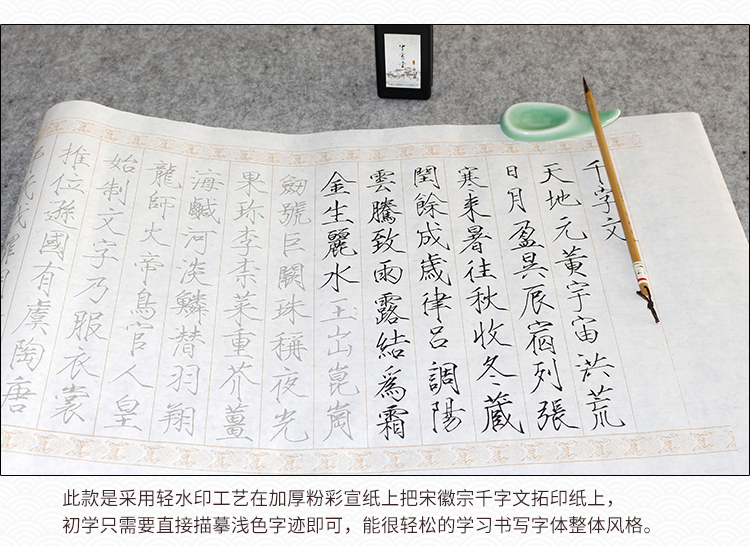 千字文
天地元黃宇宙洪荒
日月盈昃辰宿列張
寒来暑往秋收冬蔵
閏餘成歳律吕調陽
雲騰致雨露結爲霜
金生麗水玉出崑崗
劔號巨闕珠稱夜光
果珍李柰菜重芥薑
海鹹河淡鱗潜羽翔
龍師火帝鳥官人皇
始制文字乃服衣裳
推位遜國有虞陶唐
此款是采用轻水印工艺在加厚粉彩宣纸上把宋徽宗千字文拓印纸上，
初学只需要直接描摹浅色字迹即可，能很轻松的学习书写字体整体风格。